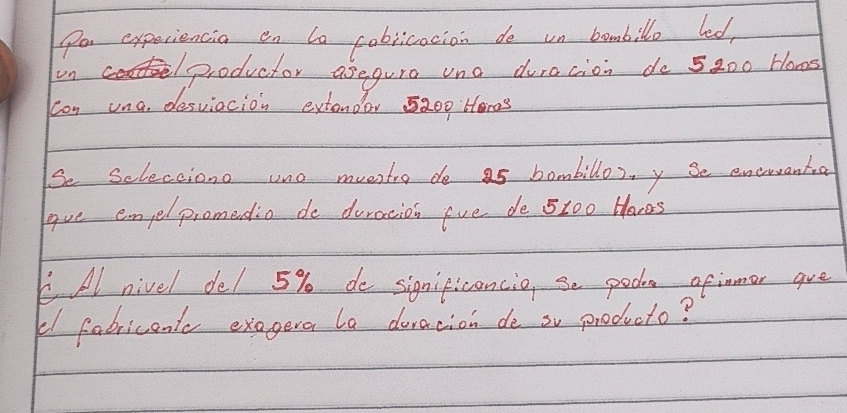 Por experiencia en la fabricación de un bombillo led,
un productor asegura una duración de 5200 Horas
con una. desviación extandar 5200 Horas
Se Selecciono una muestra de 25 bombillos, y se encuentra
que en el promedio de duración fue de 5100 Horas
¿ Al nivel del 5% de significancia, se podra afirmar que
el fabricante exagera la duración de su producto?